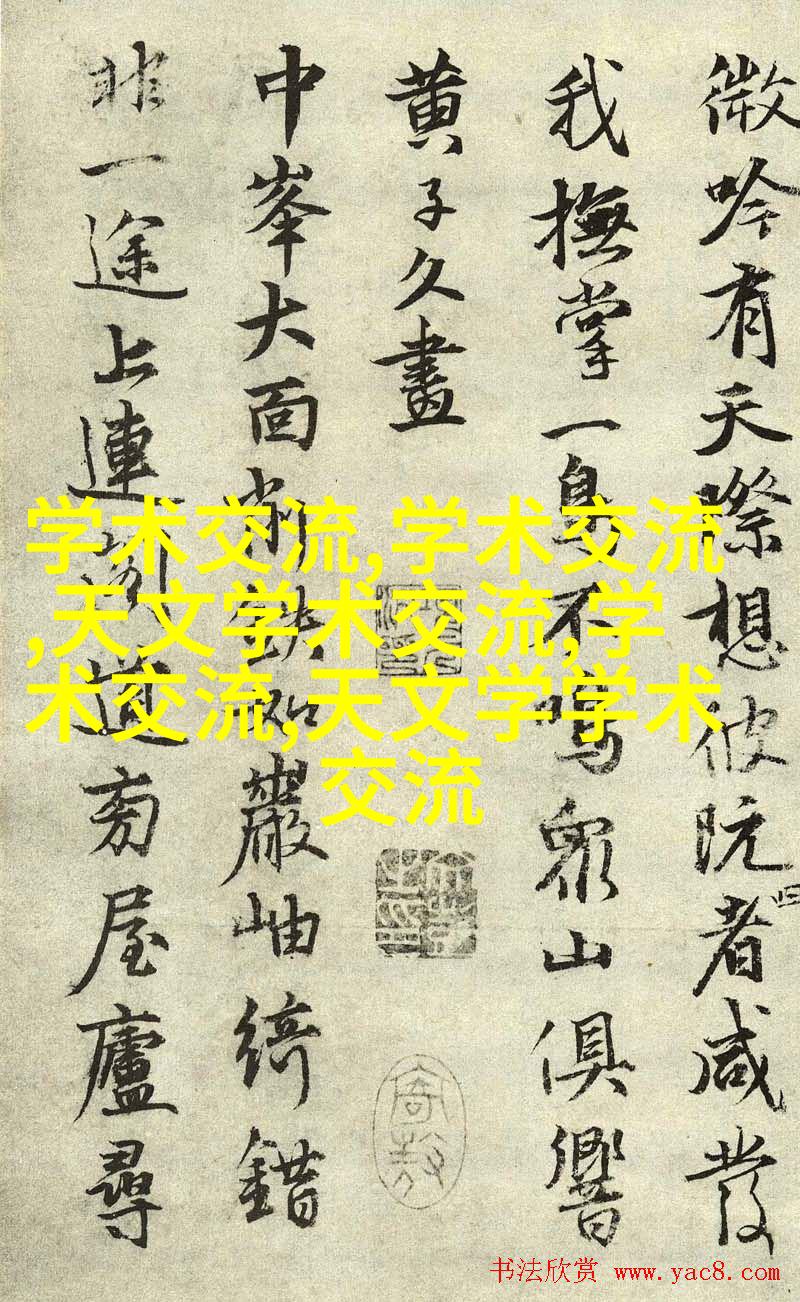 微吟有天際想彼阮者咸發
我撫掌一鳥不鳴眾山俱響
黄子久畫
中峯大面削鉄巖岫綺錯
非一途上連道旁屋廬尋
学术交流,学术交流
,天文学术交流,学
术交流,天文学学术
交流
书法欣赏 www.yac8.com